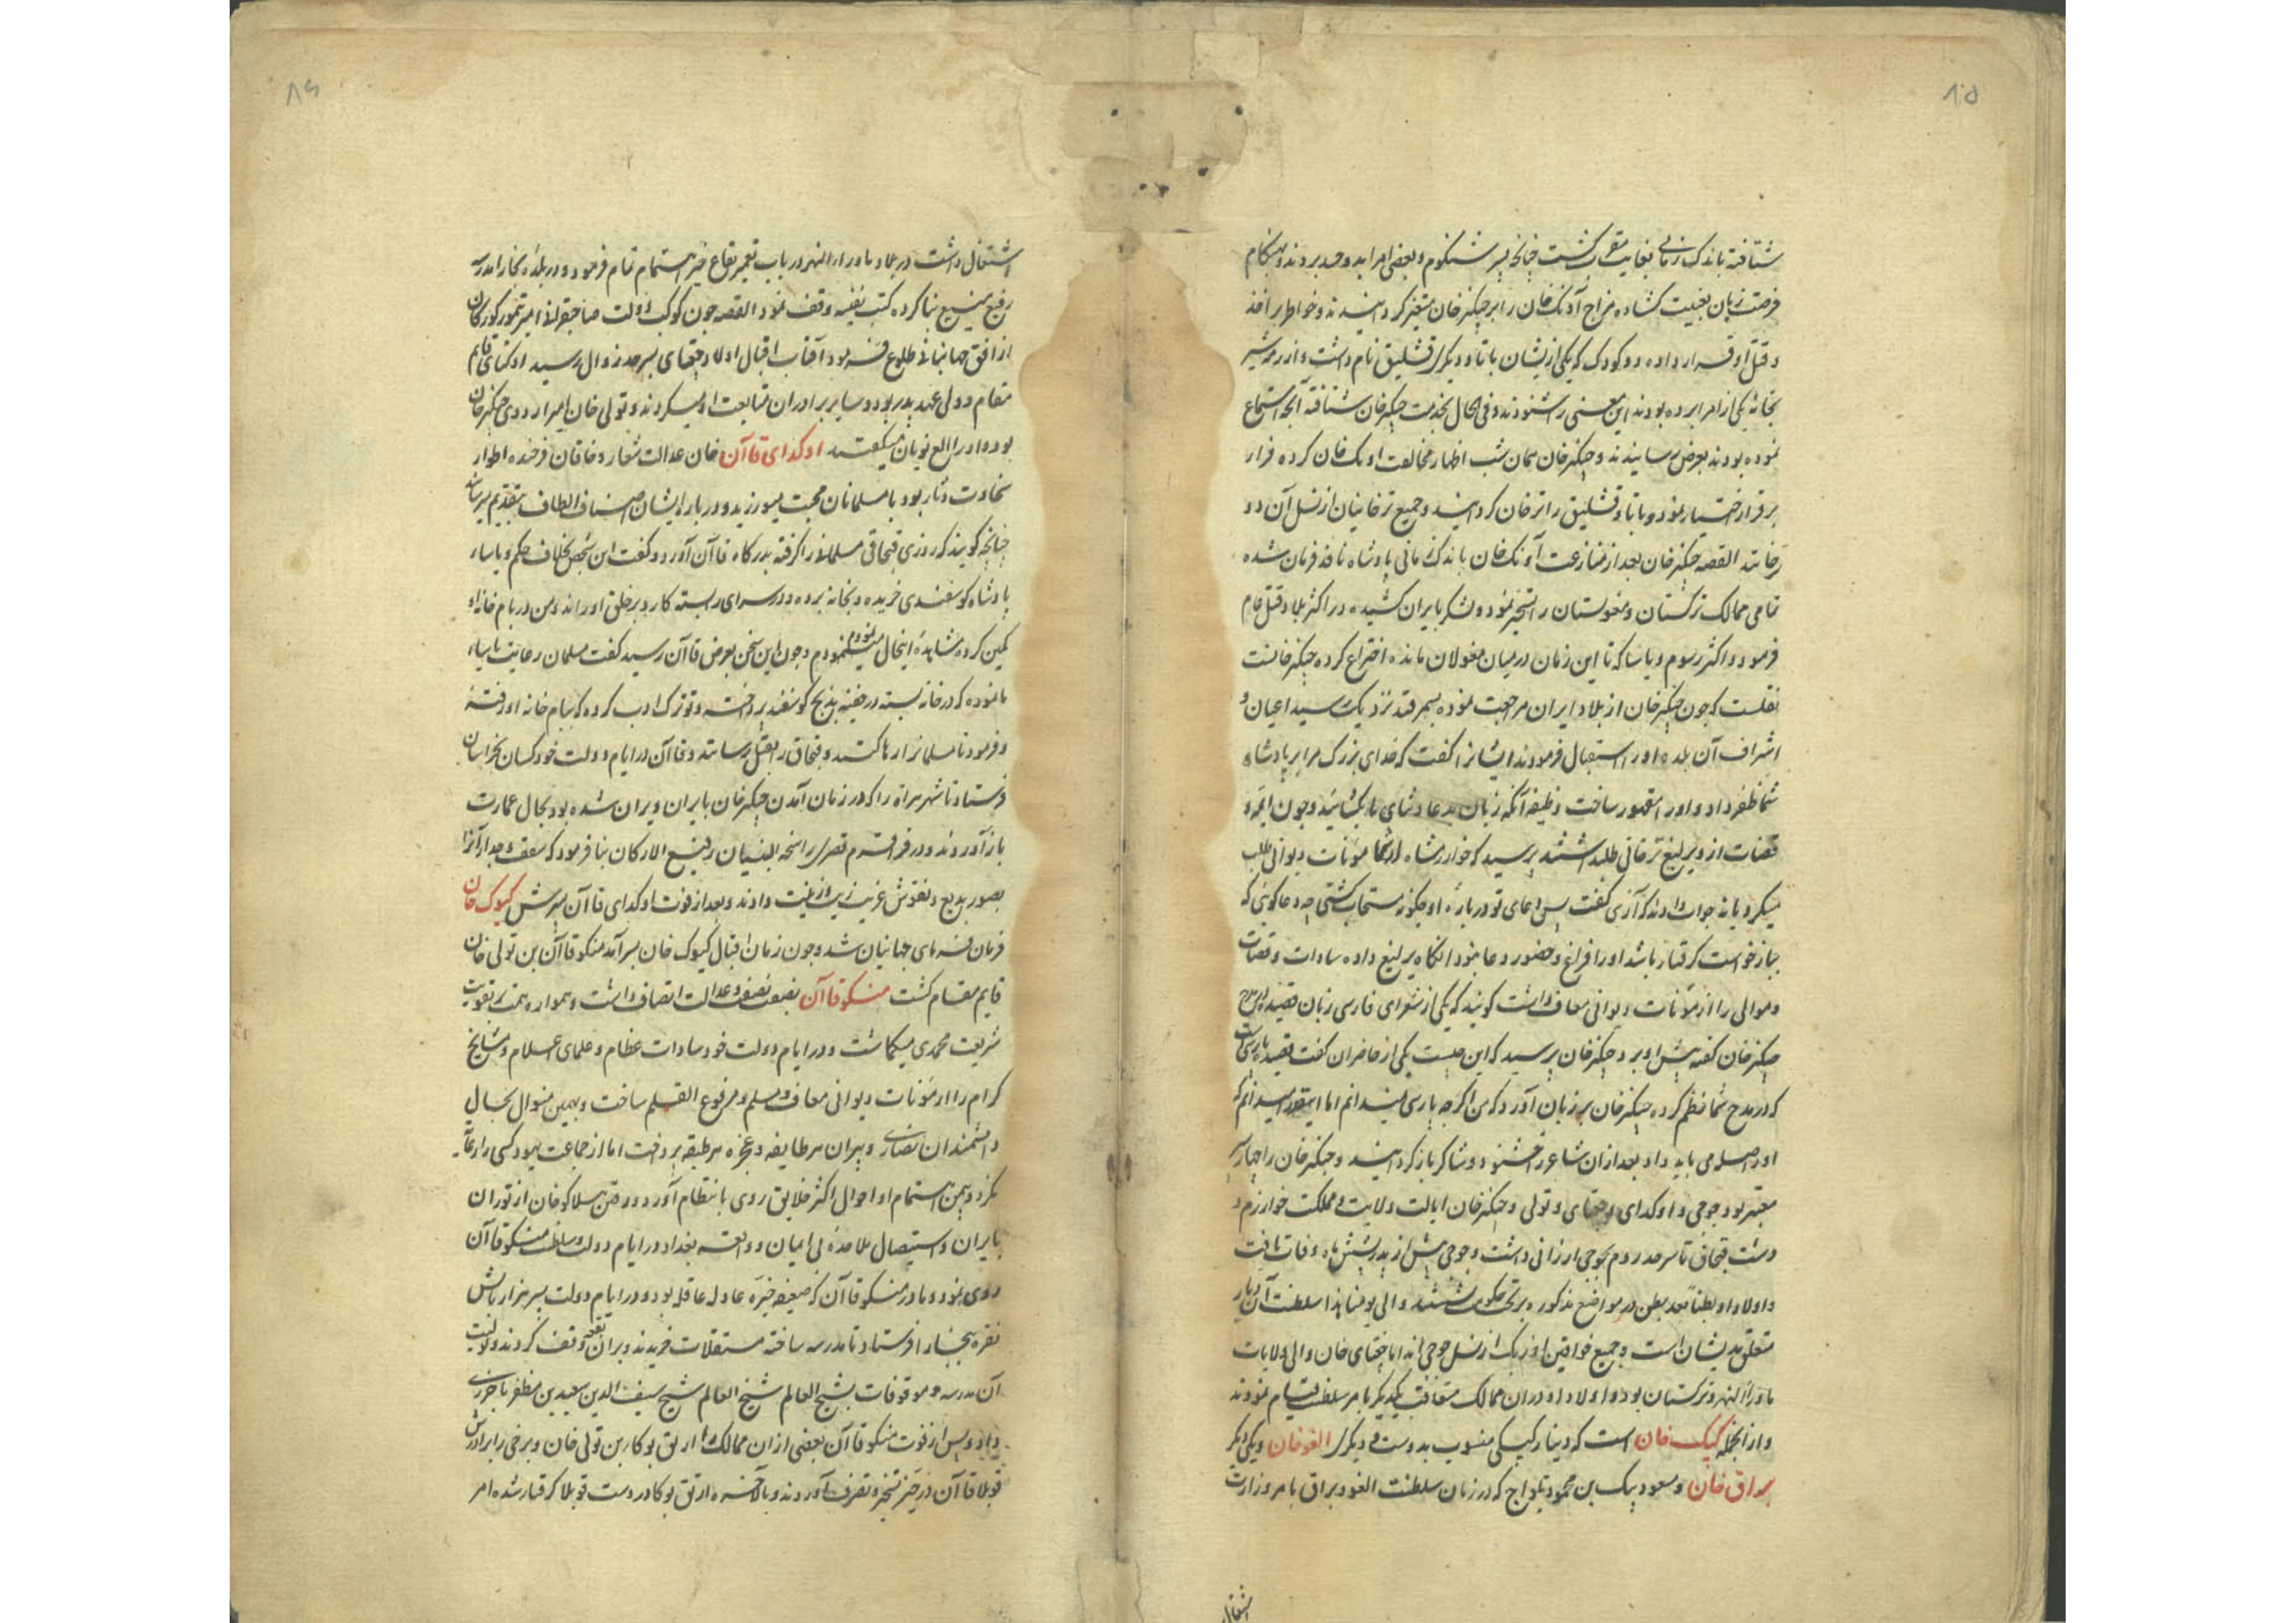 ۸۵
شتافته باندک زمانی بغایت مقرب کشت چنانچه پسر شنکوم و بعضی امرا بدو حسد بردند و هنکام
فرصت زبان بغیبت کشاده مزاج آونک خان را بر چنکیز خان متغیر کردانیدند و خواطر بر اخذ
و قتل او قرار داده دو کودک که یکی ازیشان باتا و دیکری قشلیق نام داشت و از رمه شیر
بخانه یکی از امرا برده بودند این معنی را شنودند و فی الحال بخدمت چنکیز خان شتافته آنچه استماع
نموده بودند بعرض رسانیدند و چنکیز خان همان شب اظهار مخالفت اونک خان کرده فرار
بر قرار اختیار نمود و باتا و قشلیق را ترخان کردانید و جمیع ترخانیان از نسل آن دو
ترخانند القصه چنکیز خان بعد از منازعت آونک خان باندک زمانی پادشاه نافذ فرمان شده
تمامی ممالک ترکستان و مغولستان را تسخیر نمود و لشکر بایران کشیده در اکثر بلاد قتل عام
فرمود و اکثر رسوم و یاسا که تا این زمان در میان مغولان مانده اختراع کرده چنکیز خانست
نقلست که چون چنکیز خان از بلاد ایران مراجعت نموده بسمرقند نزدیک رسید اعیان و
اشراف آن بلده او را استقبال فرمودند ایشانرا کفت که خدای بزرک مرا بر پادشاه
شما ظفر داد و او را مقهور ساخت وظیفه آنکه زبان بدعا و ثنای ما بکشائید و چون ایمه و
قضات از وی یرلیغ ترخانی طلب داشتند پرسید که خوارزمشاه از شما مؤنات دیوانی طلب
میکرد یا نه جواب دادند که آری کفت پس دعای تو درباره او چکونه مستجاب کشتی چه دعا کوئی که
بباز خواست کرفتار باشد او را فراغ و حضور دعا نبود انکاه یرلیغ داده سادات و قضات
و موالی را از مؤنات دیوانی معاف داشت کویند که یکی از شعرای فارسی زبان قصیده در مدح
چنکیز خان کفته پیش او برد چنکیز خان پرسید که این چیست یکی از حاضران کفت قصیده پارسیست
که در مدح شما نظم کرده چنکیز خان بر زبان آورد که من اکرچه پارسی نمیدانم اما اینقدر میدانم که
او را صله می باید داد بعد ازان شاعر را خشنود و شاکر باز کردانید و چنکیز خان را چهار پسر
معتبر بود جوجی و اوکدای و جغتای و تولی و چنکیز خان ایالت ولایت و مملکت خوارزم و
دشت قبچاق تا سرحد روم بجوجی ارزانی داشت و جوجی پیش از پدر بشش ماه وفات یافت
و اولاد او بطنا بعد بطن در مواضع مذکوره بر تخت حکومت نشستند و الی یومنا هذا سلطنت آن دیار
متعلق بدیشان است و جمیع خواقین اوزبک از نسل جوجی اند اما جغتای خان والی ولایات
ماوراء النهر و ترکستان بود و اولاد او دران ممالک متعاقب یکدیکر بامر سلطنت قیام نمودند
و از انجمله کپک خان است که دینار کپکی منسوب بدوست و دیکری الغو خان و یکی دیکر
براق خان و مسعود بیک بن محمود یلواج که در زمان سلطنت الغو و براق بامر وزارت
اشتغال
۸۶
اشتغال داشت در بلاد ماوراء النهر در باب تعمیر بقاع خیر اهتمام تمام فرمود و در بلده بخارا مدرسه
رفیع منیع بنا کرده کتب نفیسه وقف نمود القصه چون کوکب دولت صاحبقرانی امیر تیمور کورکان
از افق جهانبانی طلوع فرمود آفتاب اقبال اولاد جغتای بسرحد زوال رسید اوکتای قایم
مقام و ولی عهد پدر بود و سایر برادران متابعت او میکردند و تولی خان امیر اردوی چنکیز خان
بود و او را الغ نویان میکفتند اوکدای قاآن خان عدالت شعار و خاقان فرخنده اطوار
سخاوت دثار بود با مسلمانان محبت میورزید و درباره ایشان اصناف الطاف بتقدیم میرسانید
چنانچه کویند که روزی قبچاقی مسلمانی را کرفته بدرکاه قاآن آورد و کفت این شخص بخلاف حکم و یاساء
پادشاه کوسفندی خریده و بخانه برده و در سرای را بسته کارد بر حلق او راند و من در بام خانه او
کمین کرده مشاهده اینحال مینمودم و چون این سخن بعرض قاآن رسید کفت مسلمان رعایت یاساء
ما نموده که در خانه بسته در خفیه بذبح کوسفند پرداخته و تو ترک ادب کرده که ببام خانه او رفتهٔ
و فرمود تا مسلمانرا رها کنند و قبچاق را بقتل رسانند و قاآن در ایام دولت خود کسان بخراسان
فرستاد تا شهر هراة را که در زمان آمدن چنکیز خان بایران ویران شده بود بحال عمارت
باز آوردند و در قراقرم قصری راسخة البنیان رفیع الارکان بنا فرمود که سقف و جدار آنرا
بصور بدیع و نقوش غریب زیب و زینت دادند و بعد از فوت اوکدای قاآن پسرش کیوک خان
فرمان فرمای جهانیان شد و چون زمان اقبال کیوک خان بسر آمد منکو قاآن بن تولی خان
قایم مقام کشت منسکو قاآن بصفت نصفت و عدالت اتصاف داشت و همواره همت بر تقویت
شریعت محمدی میکماشت و در ایام دولت خود سادات عظام و علمای اسلام و مشایخ
کرام را از مؤنات دیوانی معاف و مسلم و مرفوع القلم ساخت و بهمین منوال بحال
دانشمندان نصاری و پیران هر طایفه و عجزه هر طبقه پرداخت اما از جماعت یهود کسی را رعایت
نکرد و بیمن اهتمام او احوال اکثر خلایق روی بانتظام آورد و رفتن هلاکو خان از توران
بایران و استیصال ملاحده بی ایمان و واقعه بغداد در ایام دولت و سلطنت منسکو قاآن
روی نمود و مادر منسکو قاآن که ضعیفه خیره عادله عاقله بود و در ایام دولت پسر هزار بالش
نقره ببخارا فرستاد تا مدرسه ساخته مستقلات خریدند و بران بقعه وقف کردند و تولیت
آن مدرسه و موقوفات بشیخ العالم شیخ العالم شیخ سیف الدین سعید بن مظفر باخرزی
داد و پس از فوت منکو قاآن بعضی از ان ممالک را اریق بوکا بن تولی خان و برخی را برادرش
قوبلا قاآن در حیز تسخیر و تصرف آوردند و بالآخره ارتق بوکا در دست قوبلا کرفتار شده امر